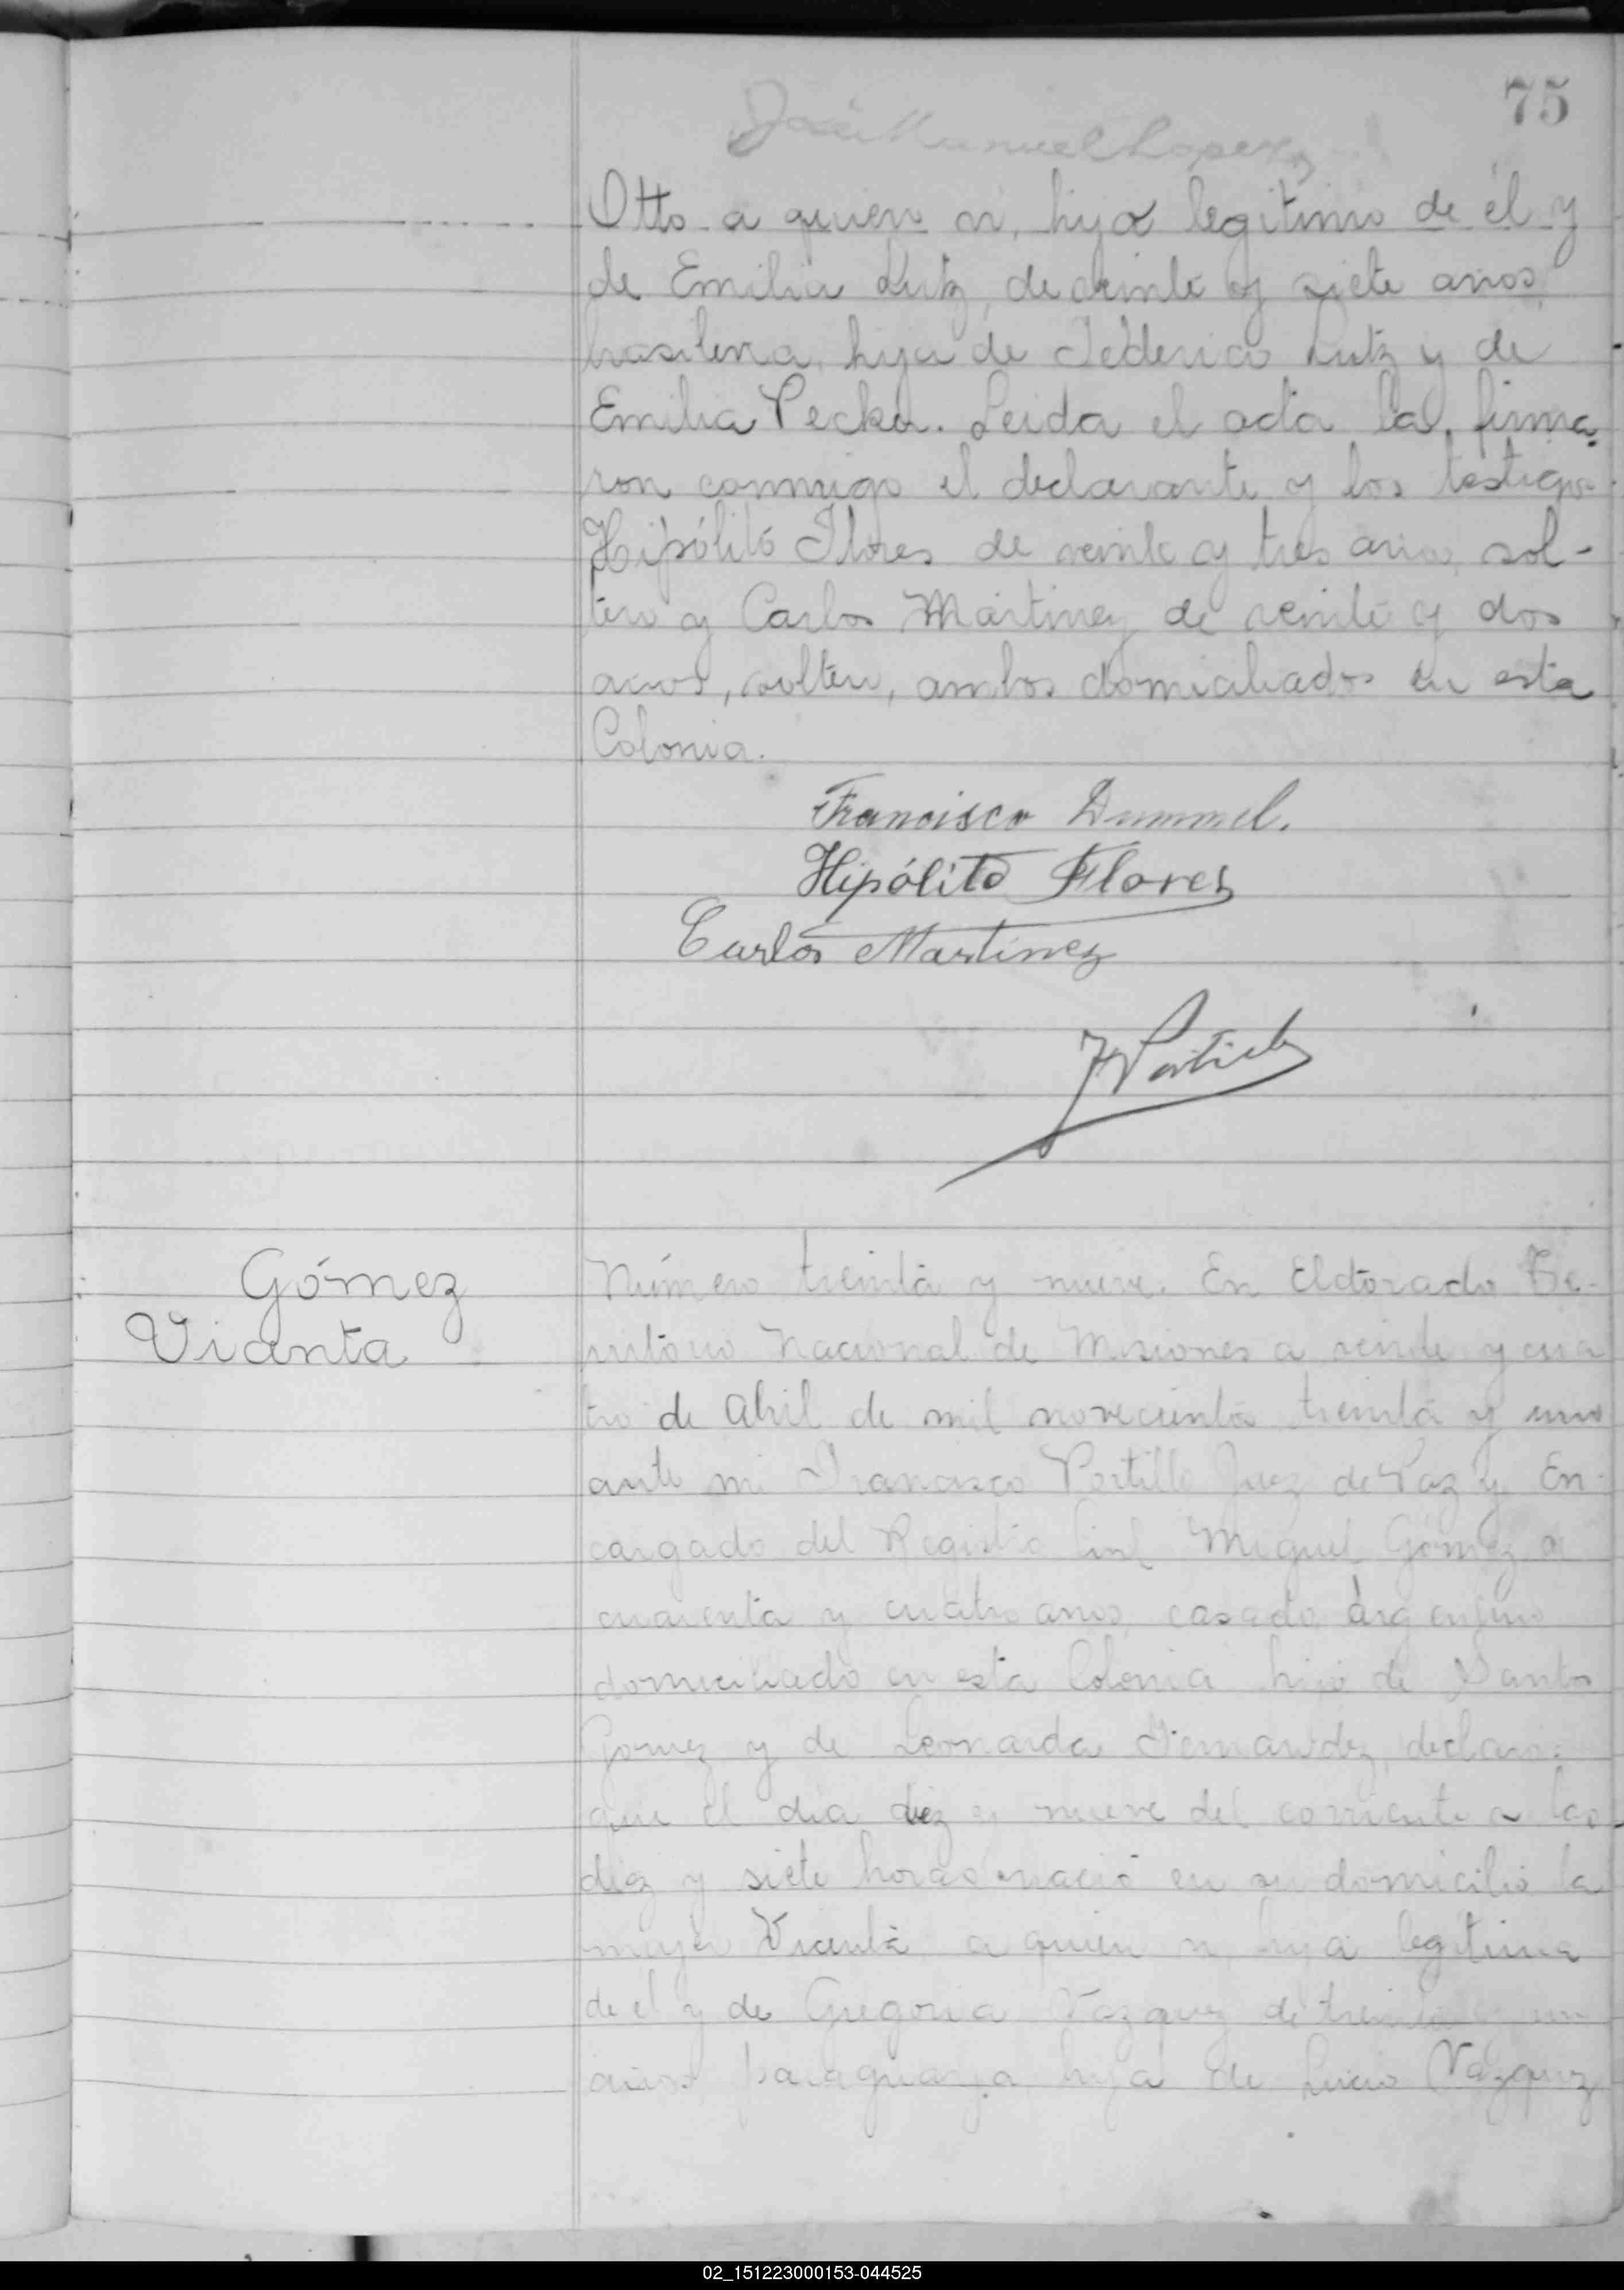 75
José Manuel Lopez
Otto a quien vi, hijo legitimo de él y
de Emilia Lutz, de veinte y siete años,
brasilera, hija de Federico Lutz y de
Emilia Pecker. Leida el acta la firma
ron conmigo el declarante y los testigos
Hipólito Flores de veinte y tres años, sol-
tero y Carlos Martinez de veinte y dos
años, soltero, ambos domiciliados en esta
Colonia.
Francisco Dummel.
Hipólito Flores
Carlos Martinez
Gómez
Vianta
Número treinta y nueve. En Eldorado Te-
rritorio Nacional de Misiones a veinte y cua
tro de Abril de mil novecientos treinta y uno
ante mi Francisco Portillo Juez de Paz y En-
cargado del Registro Civil Miguel Gómez de
cuarenta y cuatro anos, casado, argentino
domiciliado en esta Colonia hijo de Santos
Gomez y de Leonarda Fernandez, declaro:
que el dia diez y nueve del corriente a las
diez y siete horas nació en su domicilio la
mujer Vianta, a quien vi, hija legitima
de el y de Gregoria Vazquez de treinta y un
años paraguaya hija de Lucio Vázquez
02_151223000153-044525